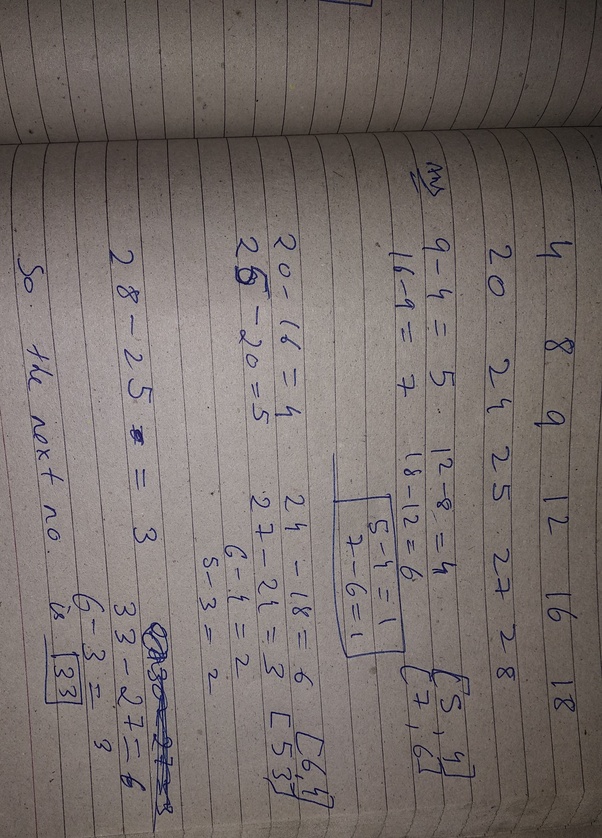 4 8 9 12 16 18
20 24 25 27 28
Ans 9-4 = 5 12-8 = 4 [5, 4]
16-9 = 7 18-12 = 6 [7, 6]
5-4 = 1
7-6 = 1
20-16 = 4 24-18 = 6 [6, 4]
25-20 = 5 27-24 = 3 [5 3]
6-4 = 2
5-3 = 2
28-25 = 3 33-27 = 6
6-3 = 3
So. the next no. is 33